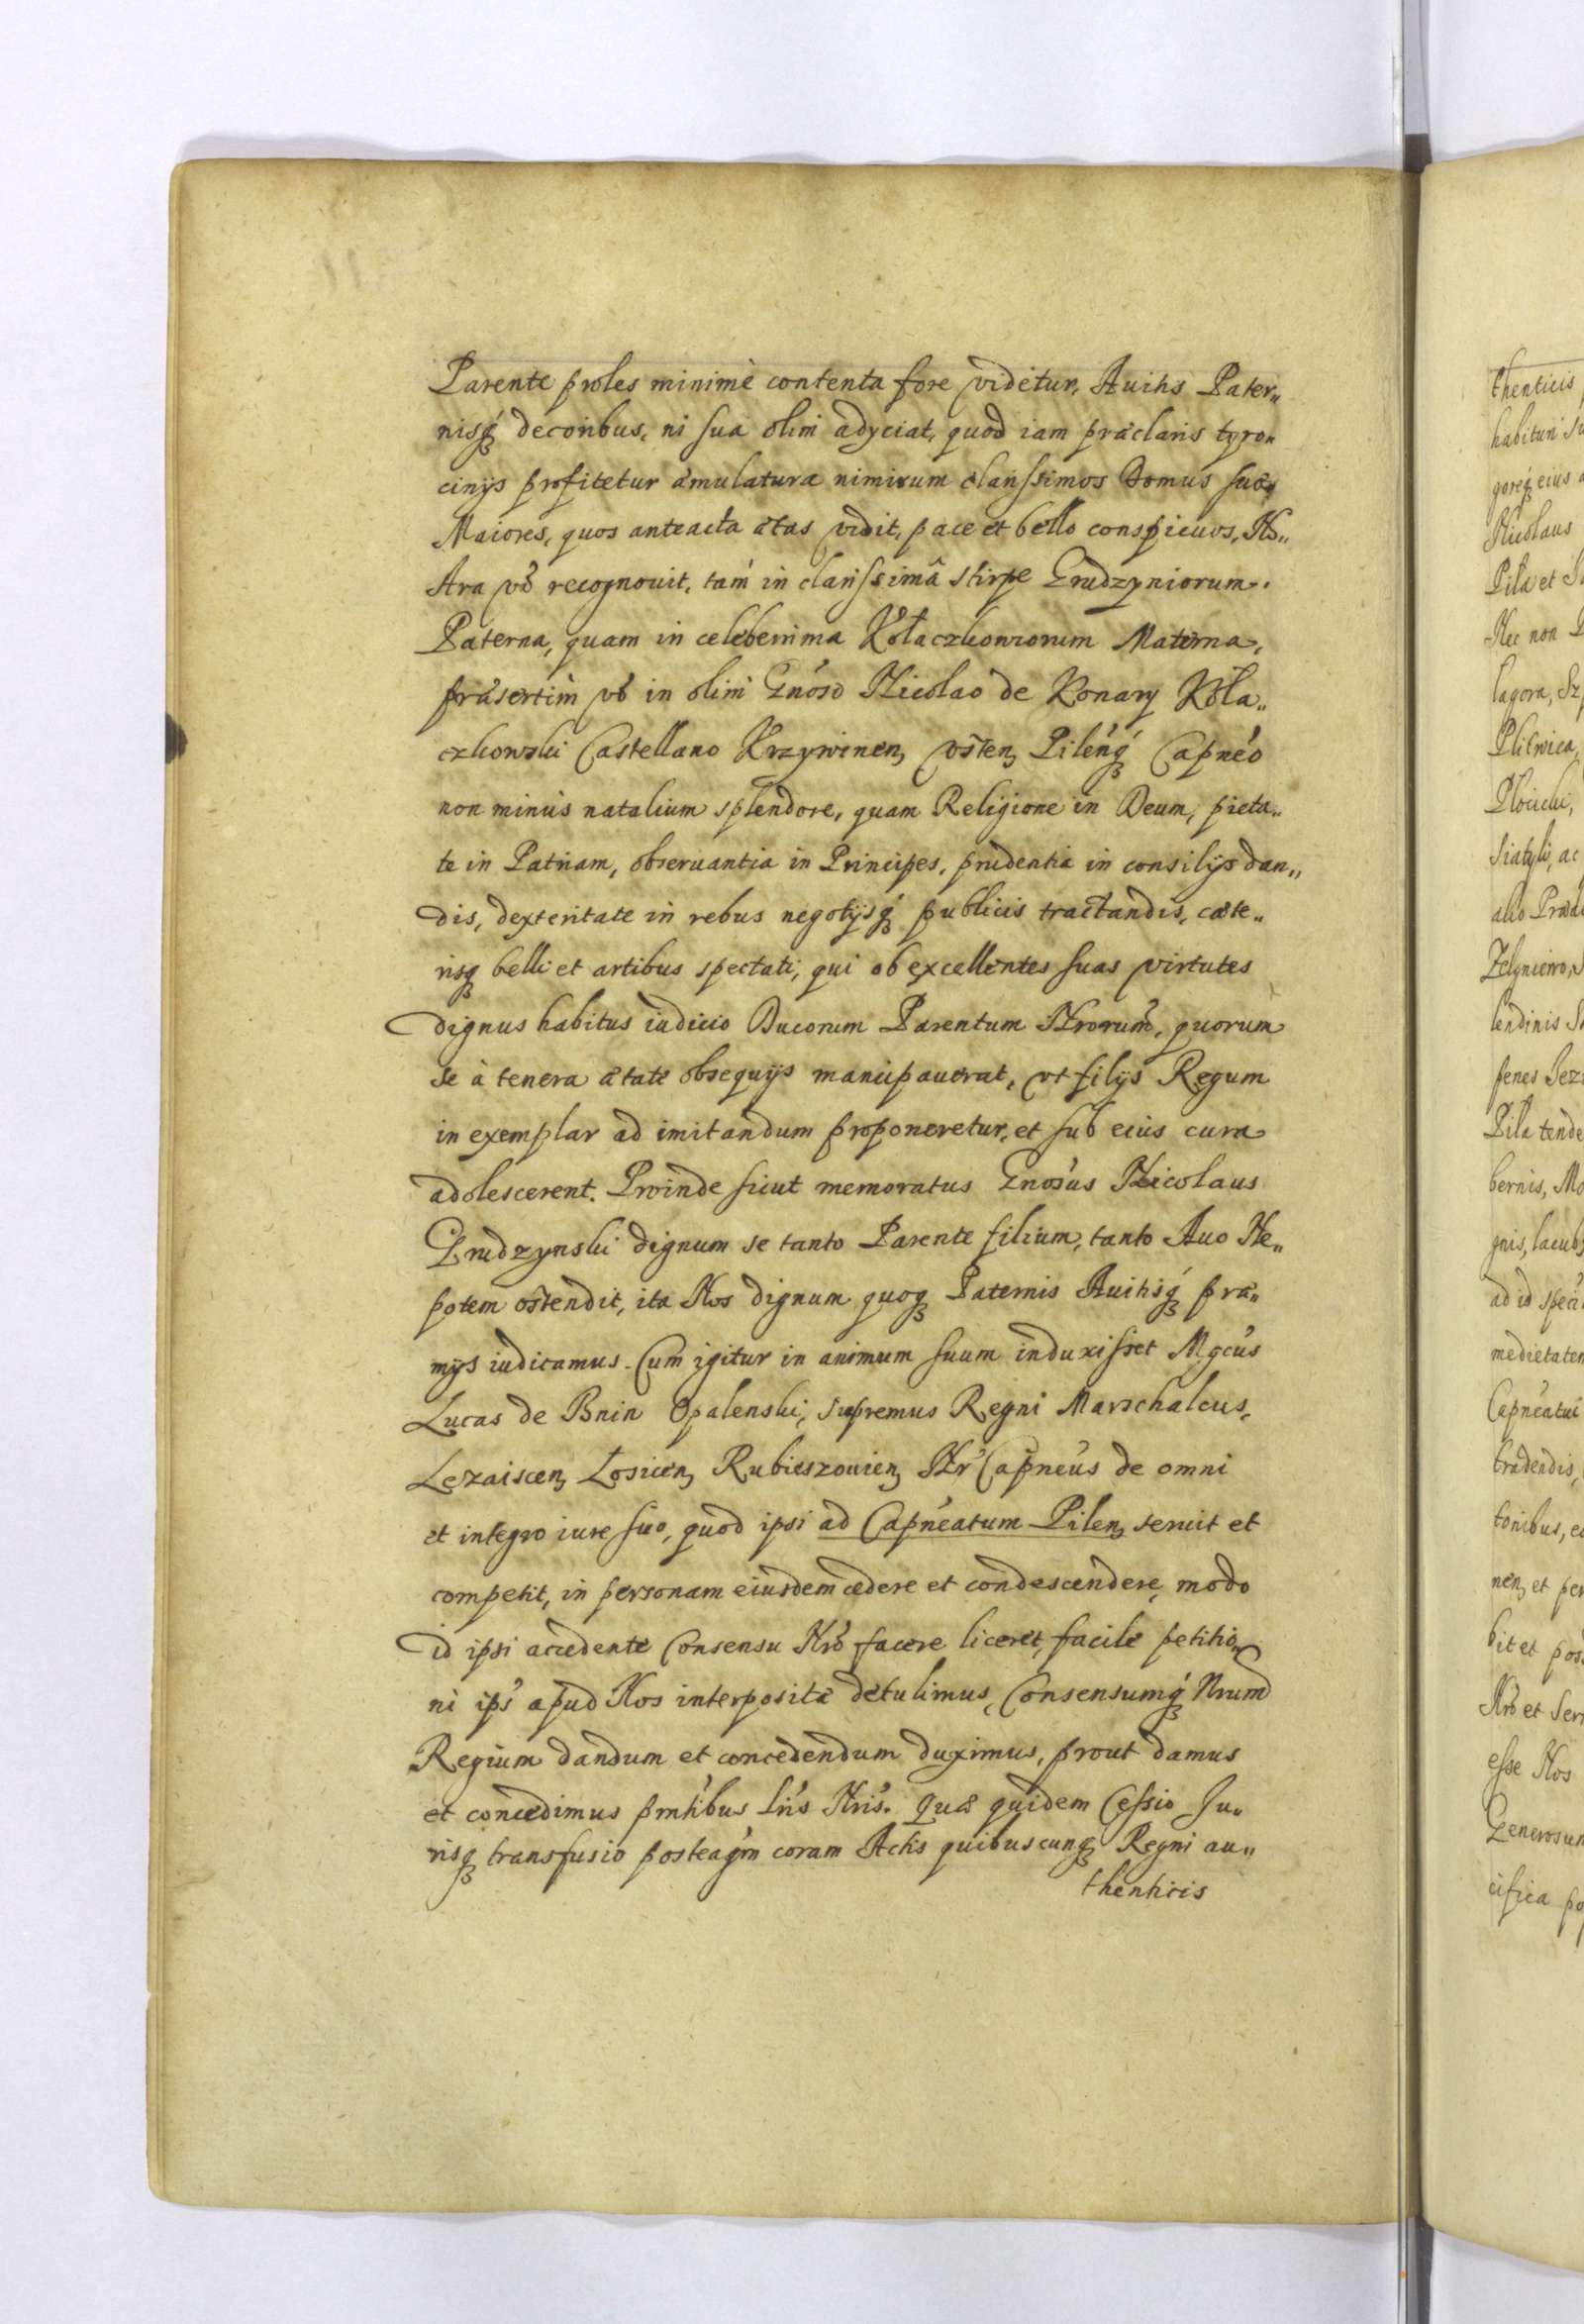 Parente proles minimè contenta fore videtur, Auitis Pater„
nisq́ꝫ decoribus, ni sua olim adijciat, quod iam præclaris tyro„
cinijs profitetur æmulatura nimirum clarissimos Domus suæ
Maiores, quos anteacta ætas vidit, pace et bello conspicuos, No„
stra vō recognouit, tam in clarissimâ stirpe Grudzyniorum
Paterna, quam in celeberrima Kołaczkowiorum Materna,
præsertim vō in olim Gnoso Nicolao de Konary Koła„
czkowski Castellano Krzywinenꝫ Vstenꝫ Pilenq́ꝫ Capneo
non minus natalium splendore, quam Religione in Deum, pieta„
te in Patriam, obseruantia in Principes, prudentia in consilijs dan„
dis, dexteritate in rebus negotijsq́ꝫ publicis tractandis, cæte„
risqꝫ belli et artibus spectati, qui ob excellentes suas virtutes
dignus habitus iudicio Diuorum Parentum Nrorum, quorum
se à tenera ætate obsequijs mancipauerat, vt filijs Regum
in exemplar ad imitandum proponeretur, et sub eius cura
adolescerent. Proinde sicut memoratus Gnosus Nicolaus
Grudzynski dignum se tanto Parente filium, tanto Auo Ne„
potem ostendit, ita Nos dignum quoqꝫ Paternis Auitisq́ꝫ præ„
mijs iudicamus. Cum igitur in animum suum induxisset Mgcus
Lucas de Bnin Opalenski, supremus Regni Marschalcus,
Lezaiscenꝫ Łosicenꝫ Rubieszouienꝫ Nr Capneus de omni
et integro iure suo, quod ipsi ad Capneatum Pilenꝫ seruit et
competit, in personam eiusdem cedere et condescendere, modo
id ipsi accedente Consensu Nro facere liceret, facilè petitio„
ni ips apud Nos interpositæ detulimus, Consensumq́ꝫ Nrum
Regium dandum et concedendum duximus, prout damus
et concedimus pntibus Lris Nris. Quæ quidem Cessio Iu„
risqꝫ transfusio posteaqm coram Actis quibuscunqꝫ Regni au„
thenticis
thenticis
Nicolaus
Pila et
Nec non
lagora,
Plitwica,
Zelgniewo,
lendinis
Pila tende
bernis,
gnis,
medietatem
Capneatui
tradendis,
tonibus,
bit et
Nro et
esse Nos
Generosum